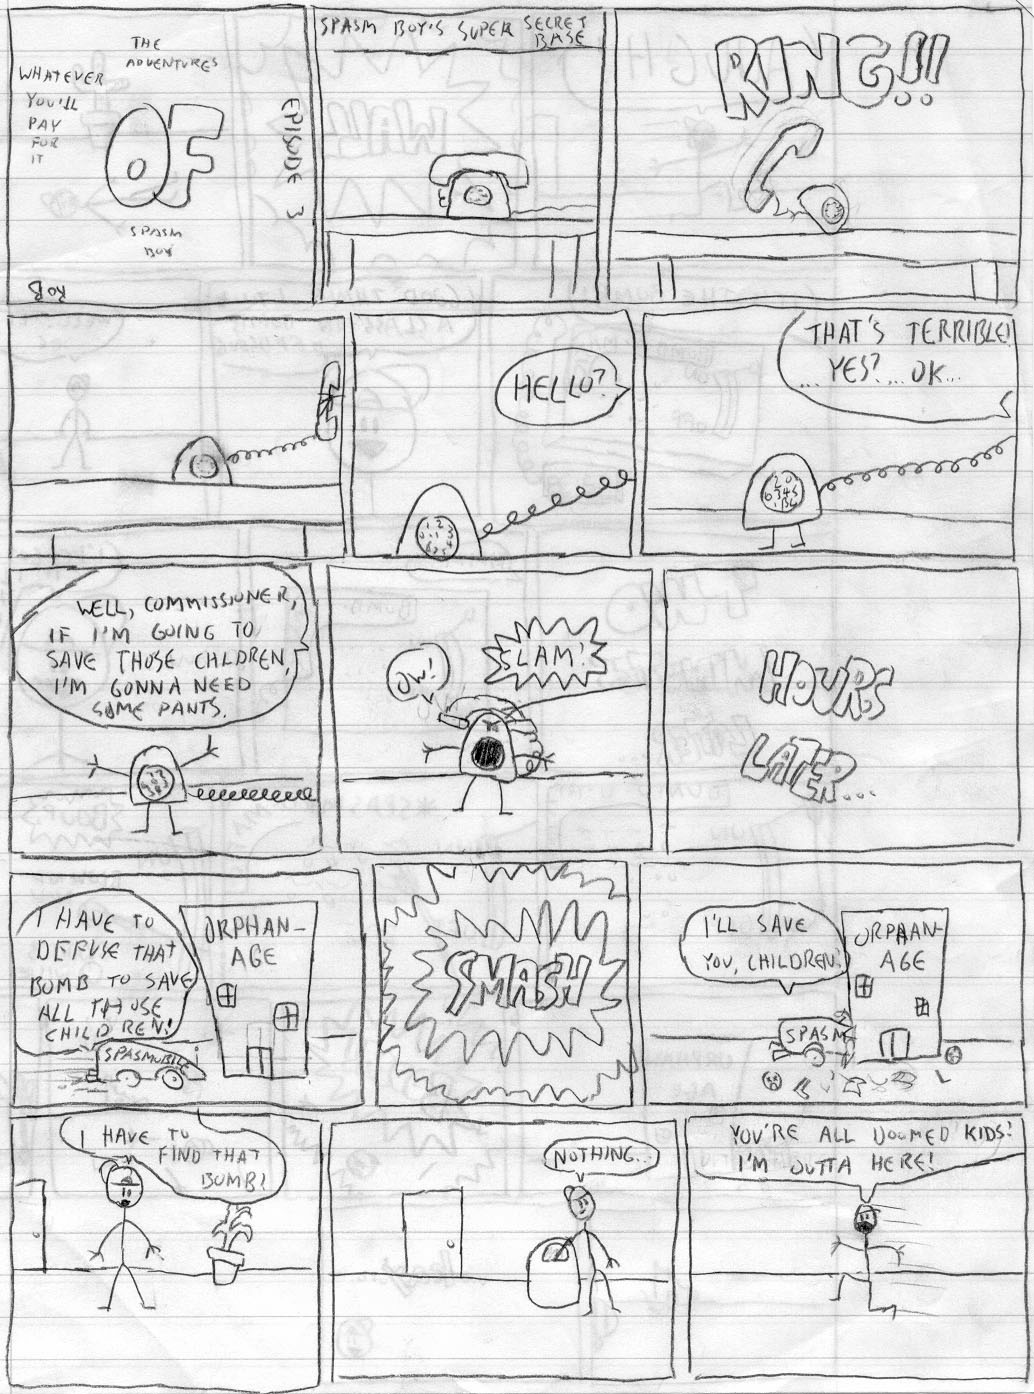 THE
ADVENTURES
WHATEVER
YOU'LL
PAY
FOR
IT
OF
EPISODE 3
SPASM
BOY
BOY
SPASM BOY'S SUPER SECRET
BASE
RING!!
HELLO?
THAT'S TERRIBLE!
...YES?...OK...
WELL, COMMISSIONER,
IF I'M GOING TO
SAVE THOSE CHLDREN,
I'M GONNA NEED
SOME PANTS.
OW!
SLAM!
HOURS
LATER...
I HAVE TO
DEFUSE THAT
BOMB TO SAVE
ALL THOSE
CHILDREN!
ORPHAN-
AGE
SPASMOBILE
SMASH
I'LL SAVE
YOU, CHILDREN!
ORPHAN-
AGE
SPASM
I HAVE TO
FIND THAT
BOMB!
NOTHING...
YOU'RE ALL DOOMED KIDS!
I'M OUTTA HERE!